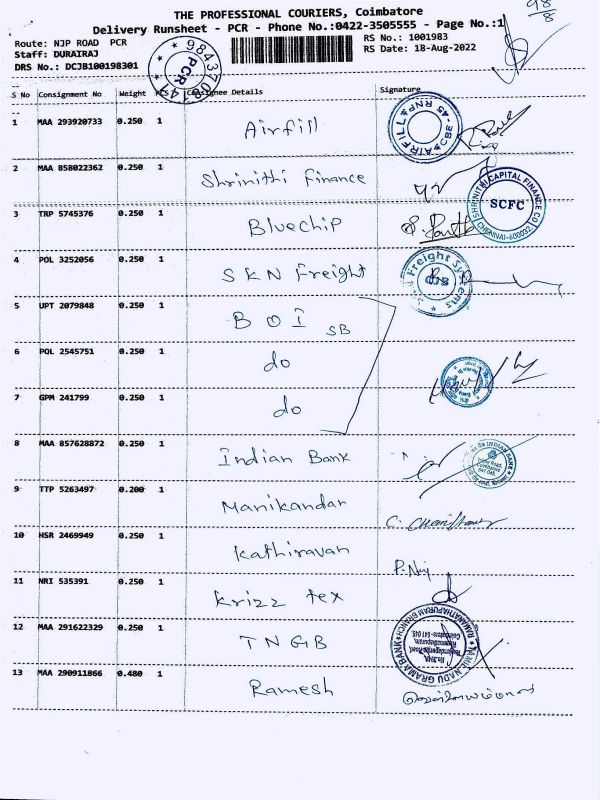 98/8
THE PROFESSIONAL COURIERS, Coimbatore
Delivery Runsheet - PCR - Phone No.:0422-3505555 - Page No.:1
Route: NJP ROAD PCR
RS No.: 1001983
Staff: DURAIRAJ
RS Date: 18-Aug-2022
DRS No.: DCJB100198301
PCR
S No Consignment No Weight PCS Consignee Details Signature
1 MAA 293920733 0.250 1 Airfill
AIRFILL RNP-45 CBE
2 MAA 858022362 0.250 1 Shrinithi Finance
SHRINITHI CAPITAL FINANCE CO SCFC CHENNAI-600032
3 TRP 5745376 0.250 1 Bluechip
4 POL 3252056 0.250 1 SKN Freight
Freight Systems
5 UPT 2079848 0.250 1 BOI SB
6 POL 2545751 0.250 1 do
7 GPM 241799 0.250 1 do
8 MAA 857628872 0.250 1 Indian Bank
INDIAN BANK
9 TTP 5263497 0.200 1 Manikandan
10 HSR 2469949 0.250 1 Kathiravan
11 NRI 535391 0.250 1 Krizz tex
12 MAA 291622329 0.250 1 TNGB
TAMIL NADU GRAMA BANK RAMANATHAPURAM BRANCH
13 MAA 290911866 0.480 1 Ramesh